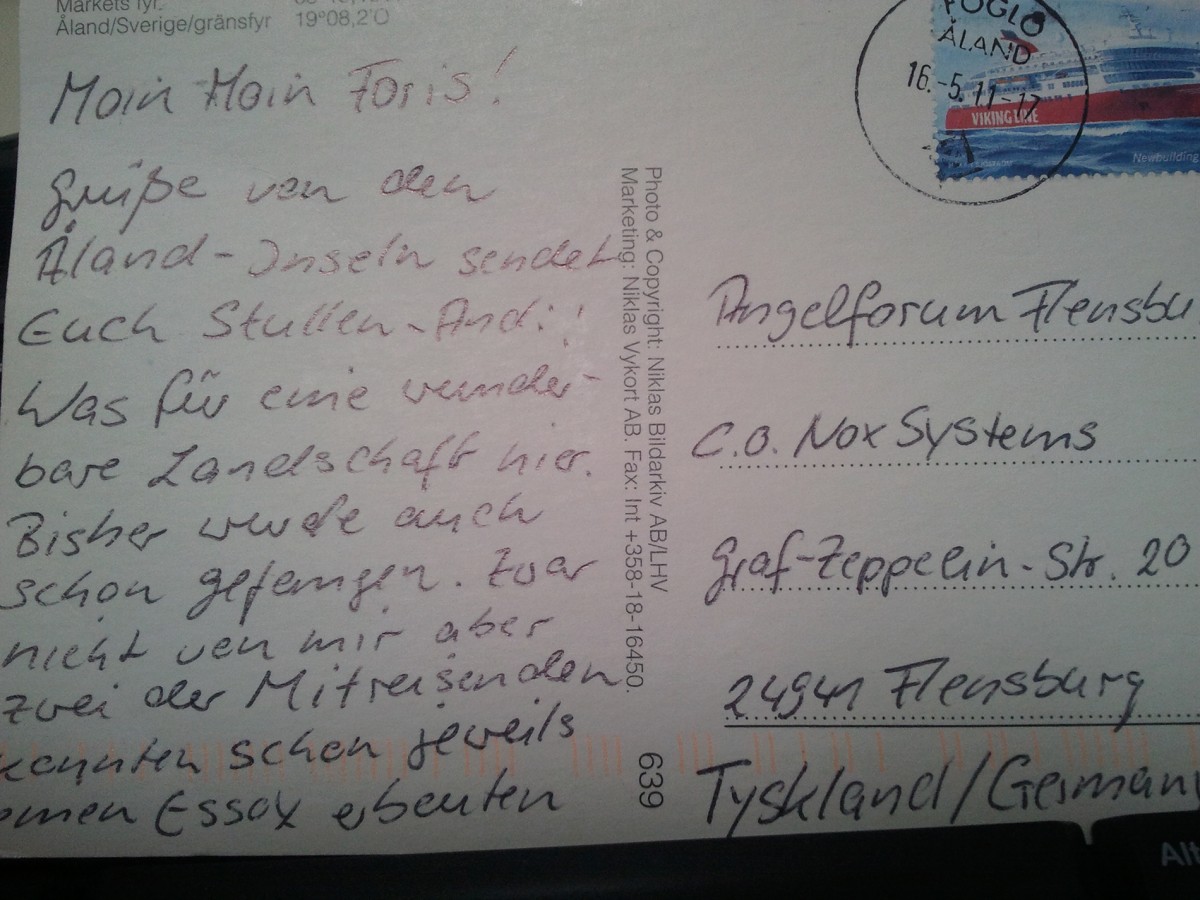 Markets fyr.
Åland/Sverige/gränsfyr 19°08,2'O
Moin Moin Foris!
Grüße von den
Åland-Inseln sendet
Euch Stullen-Andi!
Was für eine wunder-
bare Landschaft hier.
Bisher wurde auch
schon gefangen. Zwar
nicht von mir aber
zwei der Mitreisenden
konnten schon jeweils
einen Essox erbeuten
Photo & Copyright: Niklas Bildarkiv AB/LHV
Marketing: Niklas Vykort AB. Fax: Int +358-18-16450.
639
FÖGLÖ
ÅLAND
16.-5.11-17
VIKING LINE
Newbuilding
Angelforum Flensbu
C.O. Nox Systems
Graf-Zeppelin-Str. 20
24941 Flensburg
Tyskland/German
Alt